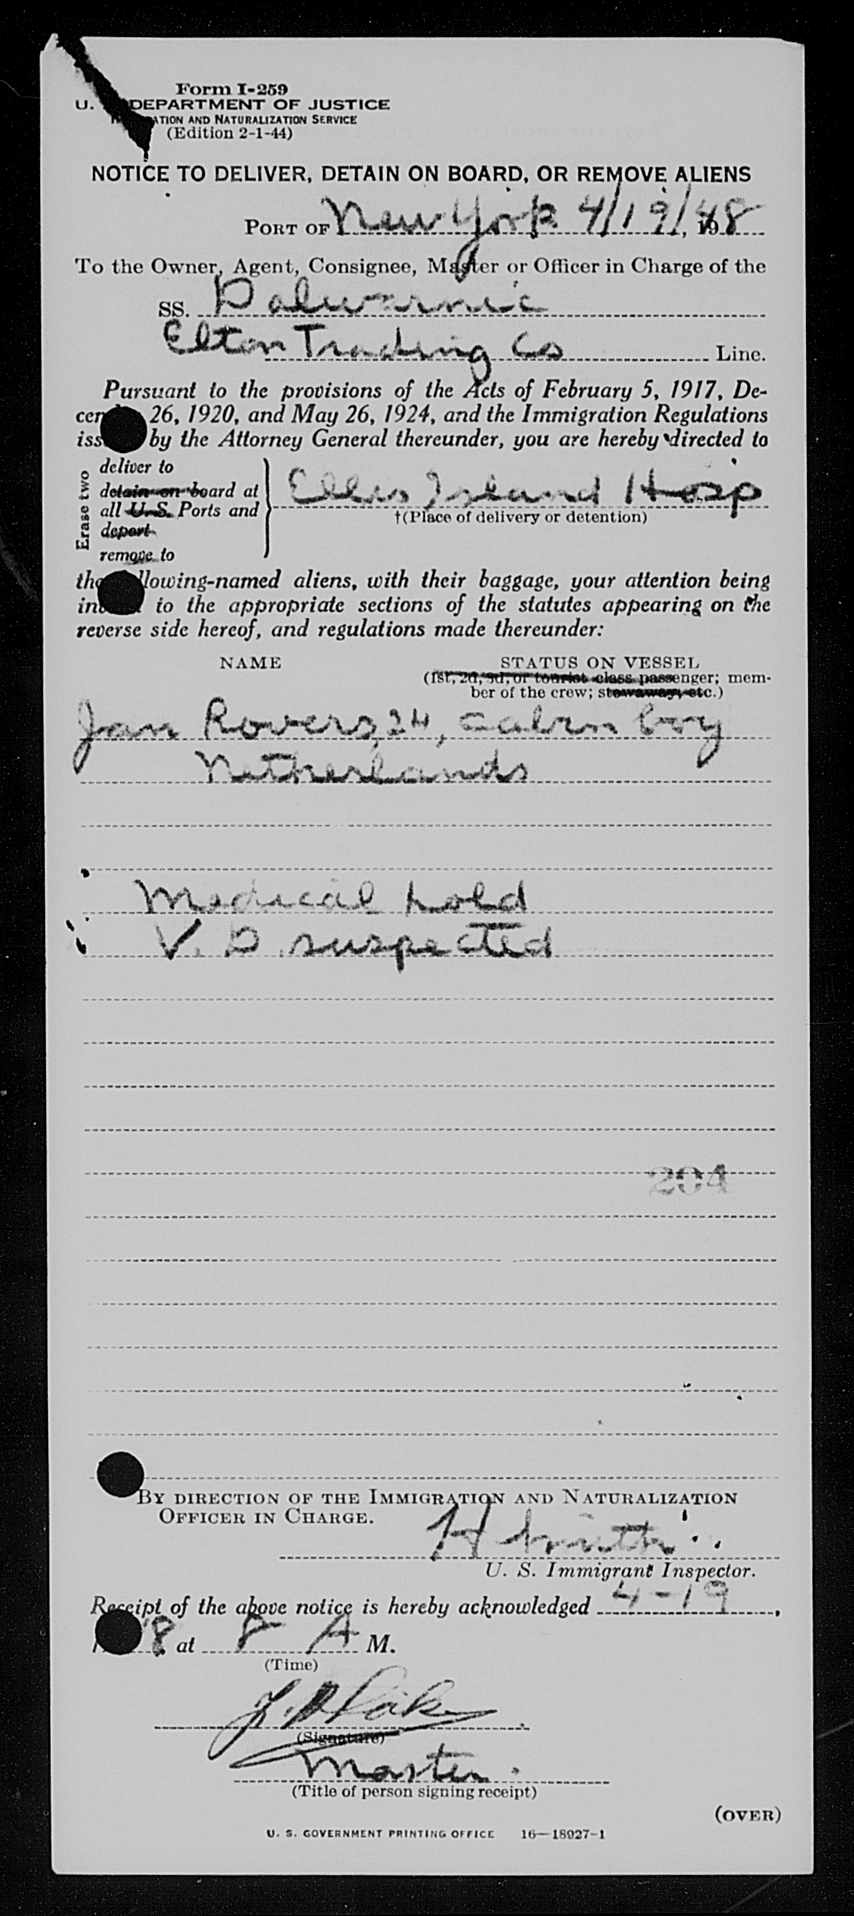 Form I-259
U. DEPARTMENT OF JUSTICE
ATION AND NATURALIZATION SERVICE
(Edition 2-1-44)
NOTICE TO DELIVER, DETAIN ON BOARD, OR REMOVE ALIENS
PORT OF New York 4/19/48, 19
To the Owner, Agent, Consignee, Master or Officer in Charge of the
SS. Dalwarnic
Elton Trading Co Line.
Pursuant to the provisions of the Acts of February 5, 1917, De-
cem 26, 1920, and May 26, 1924, and the Immigration Regulations
iss by the Attorney General thereunder, you are hereby directed to
Erase two
deliver to
detain on board at
all U.S. Ports and
deport
remove to
Ellis Island Hosp
†(Place of delivery or detention)
the llowing-named aliens, with their baggage, your attention being
in to the appropriate sections of the statutes appearing on the
reverse side hereof, and regulations made thereunder:
NAME STATUS ON VESSEL
(1st, 2d, 3d, or tourist class passenger; mem-
ber of the crew; stowaway, etc.)
Jan Rovers, 24, cabin boy
Netherlands
Medical hold
V. D. suspected
204
BY DIRECTION OF THE IMMIGRATION AND NATURALIZATION
OFFICER IN CHARGE.
H
U. S. Immigrant Inspector.
Receipt of the above notice is hereby acknowledged 4-19,
8 at 8 A M.
(Time)
(Signature)
Master
(Title of person signing receipt)
(OVER)
U. S. GOVERNMENT PRINTING OFFICE 16—18027-1